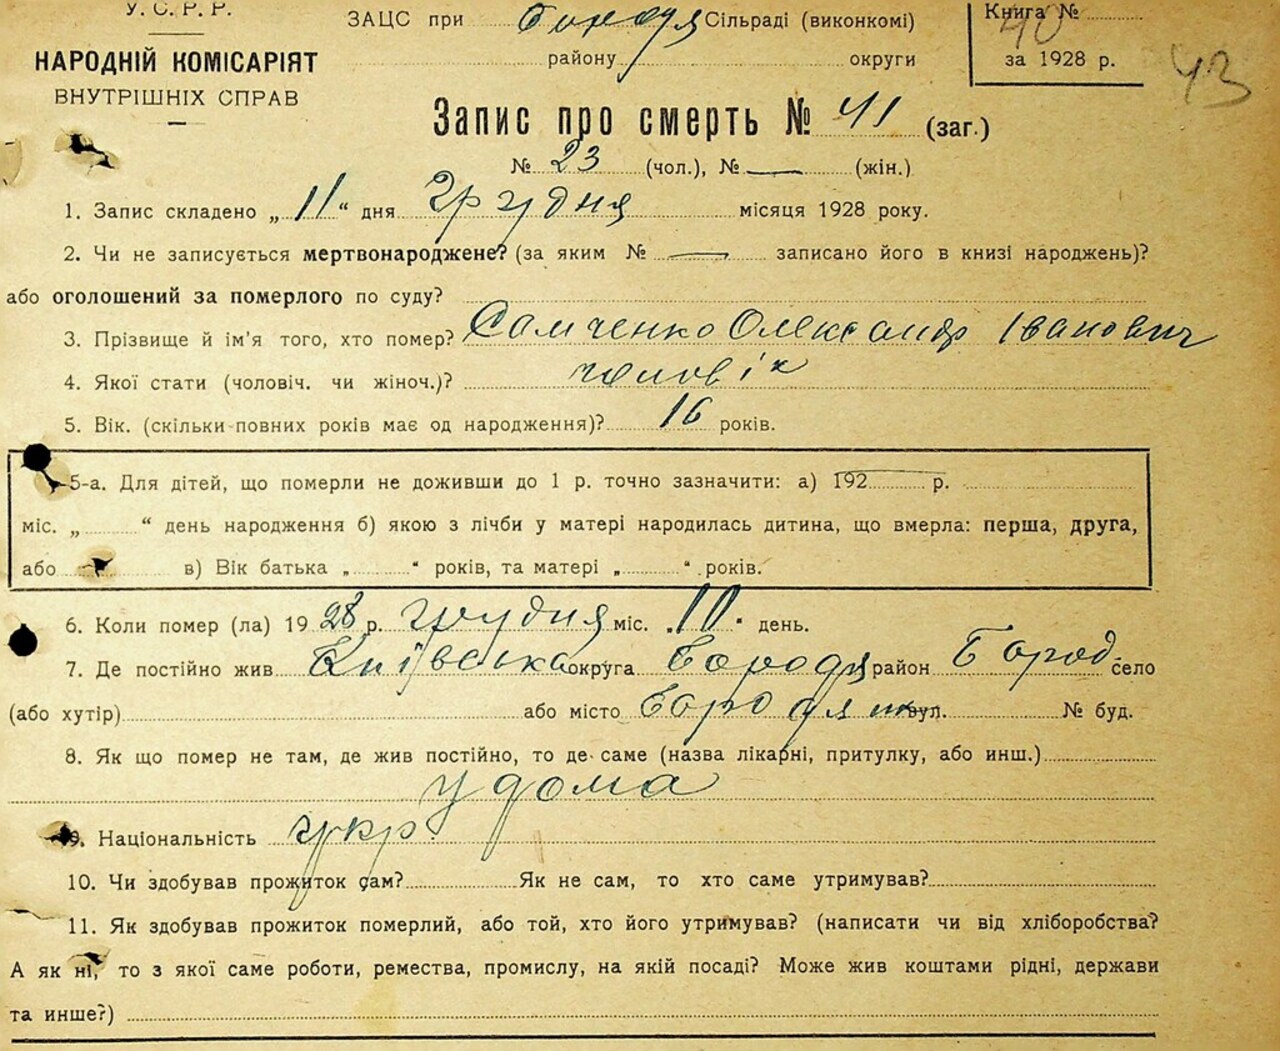 У.С.Р.Р.
ЗАЦС при Бородя Сільраді (виконкомі)
Книга №
40
НАРОДНІЙ КОМІСАРІЯТ
району округи
за 1928 р.
43
ВНУТРІШНІХ СПРАВ
Запис про смерть № 41 (заг.)
№ 23 (чол.), № — (жін.)
1. Запис складено „ 11 “ дня грудня місяця 1928 року.
2. Чи не записується мертвонароджене? (за яким № — записано його в книзі народжень)?
або оголошений за померлого по суду?
3. Прізвище й ім'я того, хто помер? Самченко Олександр Іванович
4. Якої стати (чоловіч. чи жіноч.)? чоловік
5. Вік. (скільки повних років має од народження)? 16 років.
5-а. Для дітей, що померли не доживши до 1 р. точно зазначити: а) 192 р.
міс. „ “ день народження б) якою з лічби у матері народилась дитина, що вмерла: перша, друга,
або в) Вік батька „ “ років, та матері „ “ років.
6. Коли помер (ла) 1928 р. грудня міс. „10“ день.
7. Де постійно жив Київська округа Бородя район Бород. село
(або хутір) або місто вул. № буд.
8. Як що помер не там, де жив постійно, то де саме (назва лікарні, притулку, або инш.)
у дома
9. Національність укр.
10. Чи здобував прожиток сам? Як не сам, то хто саме утримував?
11. Як здобував прожиток померлий, або той, хто його утримував? (написати чи від хліборобства?
А як ні, то з якої саме роботи, ремества, промислу, на якій посаді? Може жив коштами рідні, держави
та инше?)